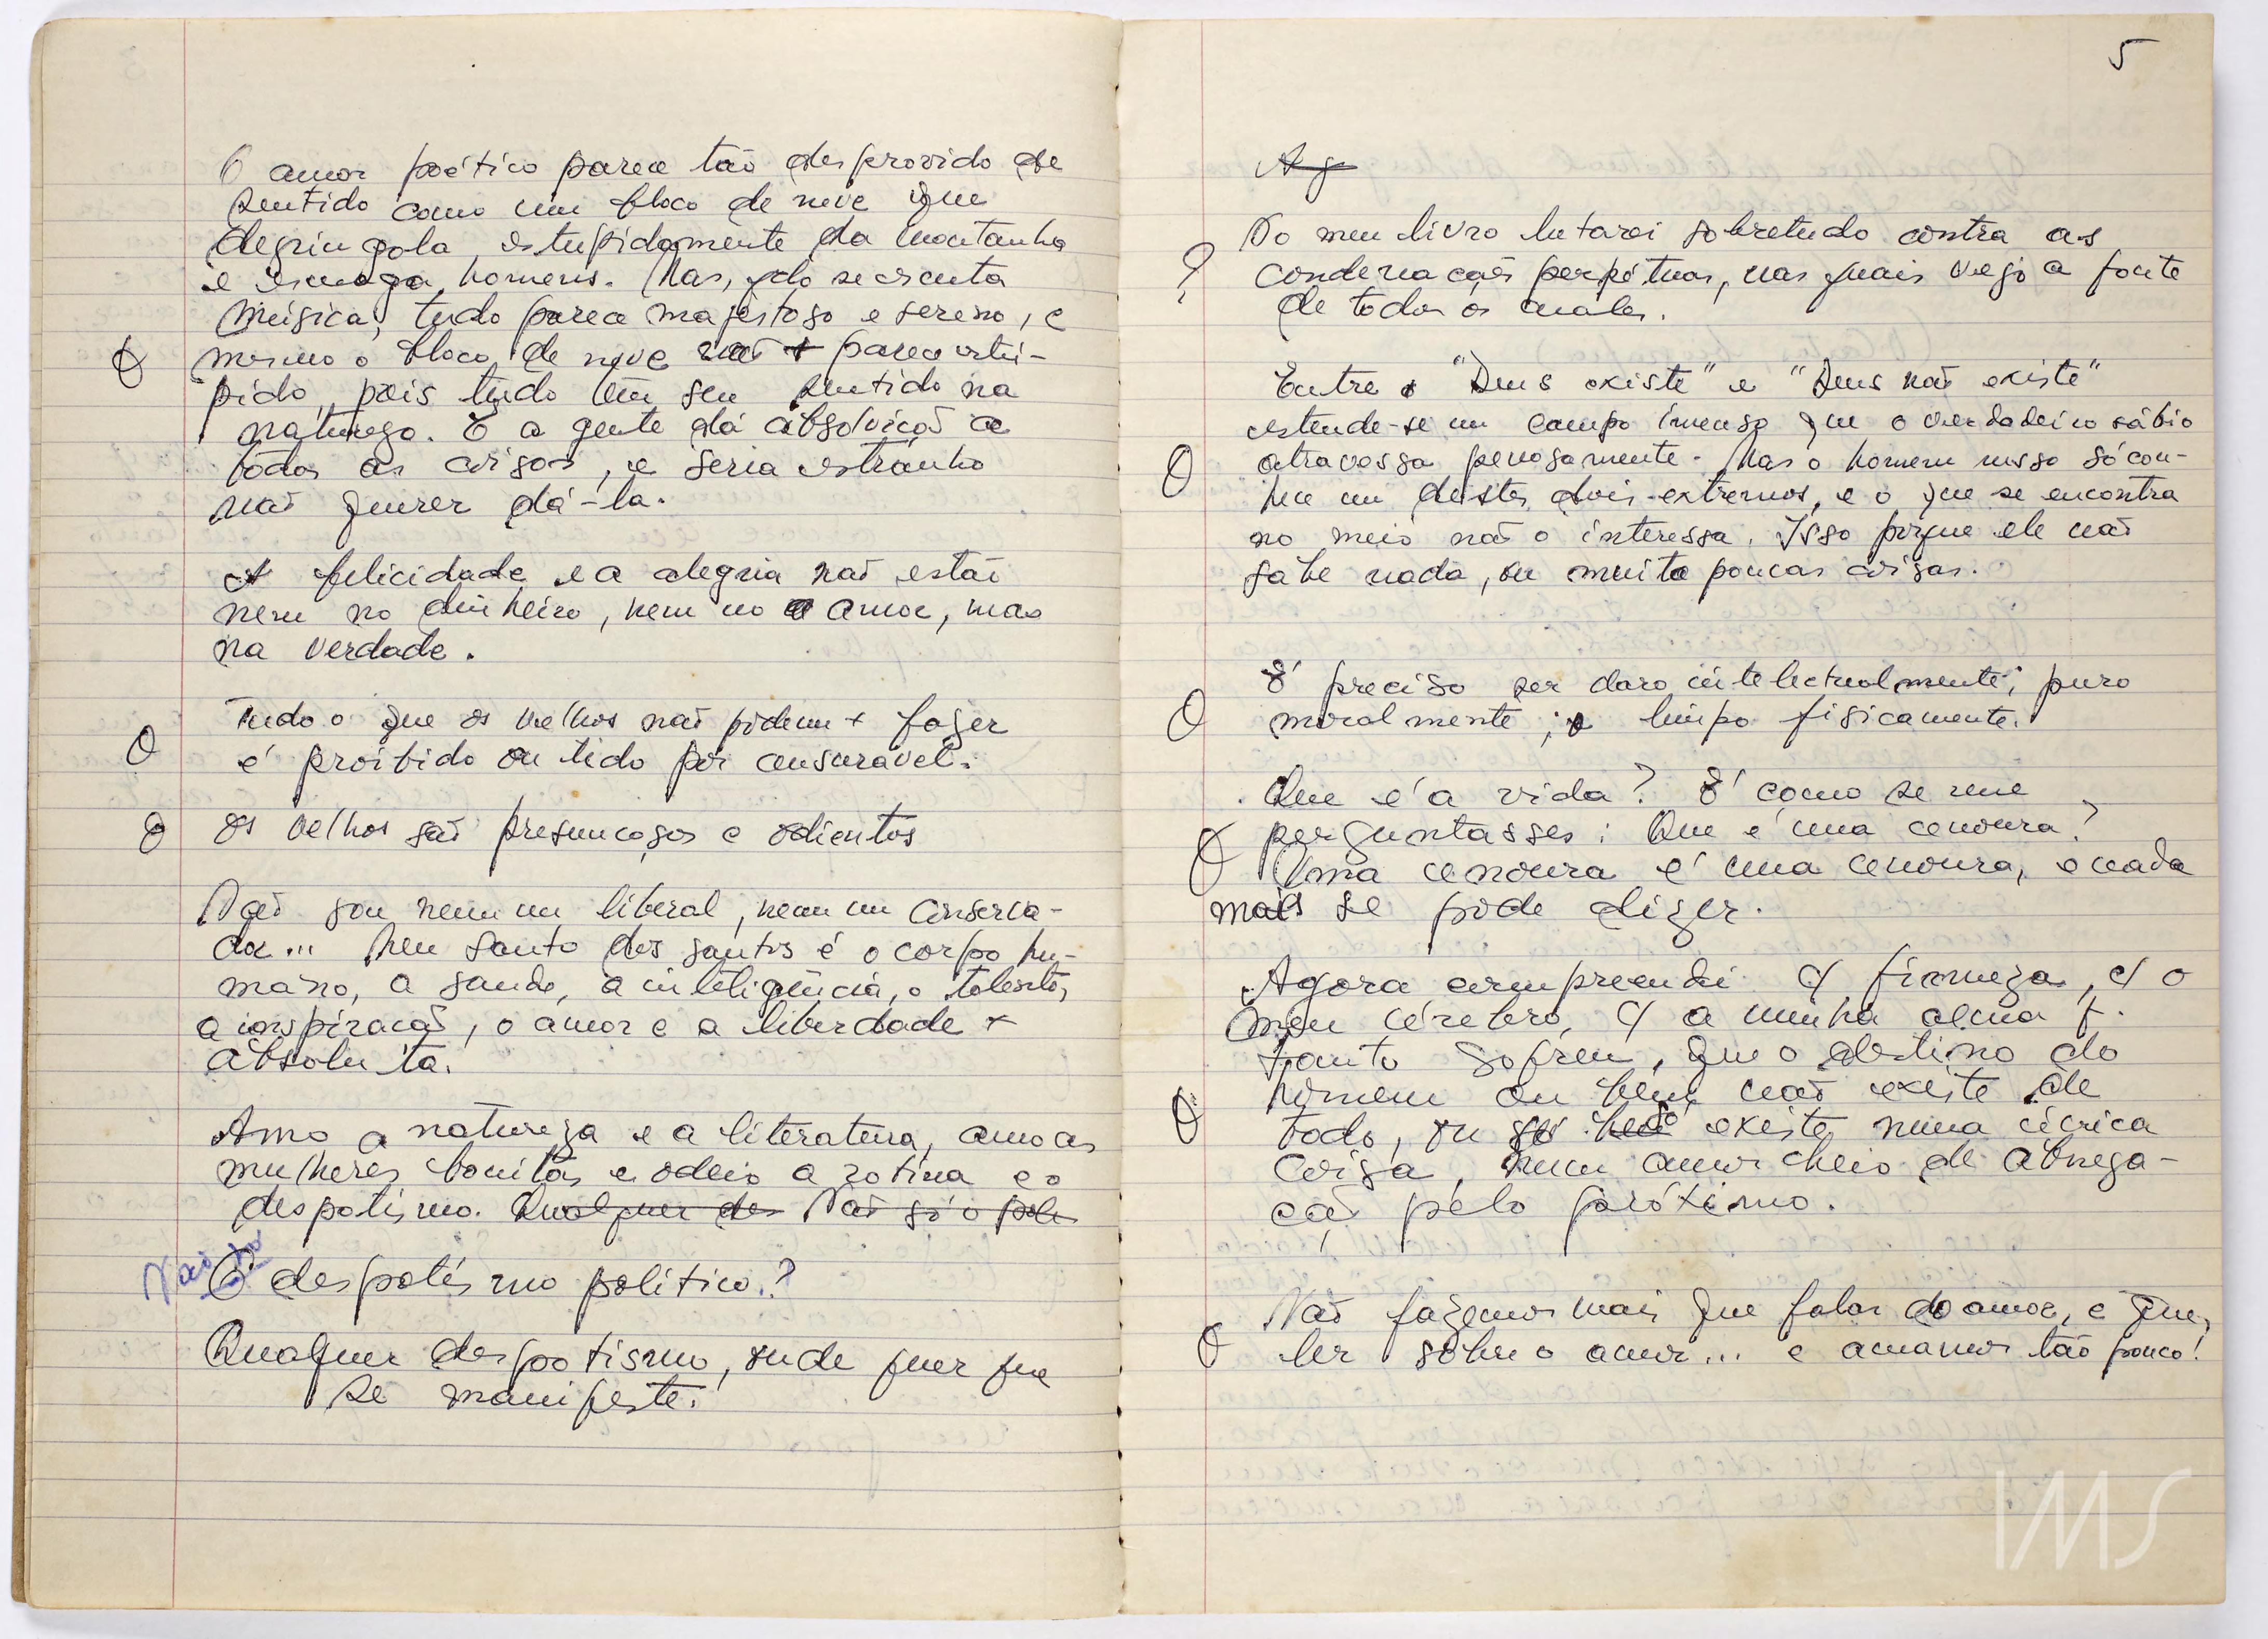 O amor poético parece tão desprovido de
sentido como um bloco de neve que
degringola estupidamente da montanha
e esmaga homens. Mas, qdo se escuta
música, tudo parece majestoso e sereno, e
mesmo o bloco de neve não + parece estú-
pido, pois tudo tem seu sentido na
natureza. E a gente dá absolvição a
todas as coisas, e seria estranho
não querer dá-la.
A felicidade e a alegria não estão
nem no dinheiro, nem no amor, mas
na verdade.
Tudo o que os velhos não podem + fazer
é proibido ou tido por censurável.
Os velhos são presunçosos e odientos
Não sou nem um liberal, nem um conserva-
dor... Meu santo dos santos é o corpo hu-
mano, a saúde, a inteligência, o talento,
a inspiração, o amor e a liberdade +
absoluta.
Amo a natureza e a literatura, amo as
mulheres bonitas e odeio a rotina e o
despotismo. Qualquer des Não só o
Não
O despotismo político?
Qualquer despotismo, onde quer que
se manifeste.
5
Ag
No meu livro lutarei sobretudo contra as
? condenações perpétuas, nas quais vejo a fonte
de todos os males.
Entre o "Deus existe" e "Deus não existe"
estende-se um campo imenso que o verdadeiro sábio
atravessa penosamente. Mas o homem russo só con-
hece um destes dois extremos, e o que se encontra
no meio não o interessa. Isso porque ele não
sabe nada, ou muito poucas coisas.
É preciso ser claro intelectualmente; puro
moralmente; e limpo fisicamente.
Que é a vida? É como se me
perguntasses: Que é uma cenoura?
Uma cenoura é uma cenoura, e nada
mais se pode dizer.
Agora compreendi c/ firmeza, c/ o
meu cérebro, c/ a minha alma q.
tanto sofreu, que o destino do
homem ou bem não existe de
todo, ou só existe numa única
coisa, num amor cheio de abnega-
ção pelo próximo.
Não fazemos mais que falar do amor, e que,
ler sobre o amor... e amamos tão pouco!
IMS